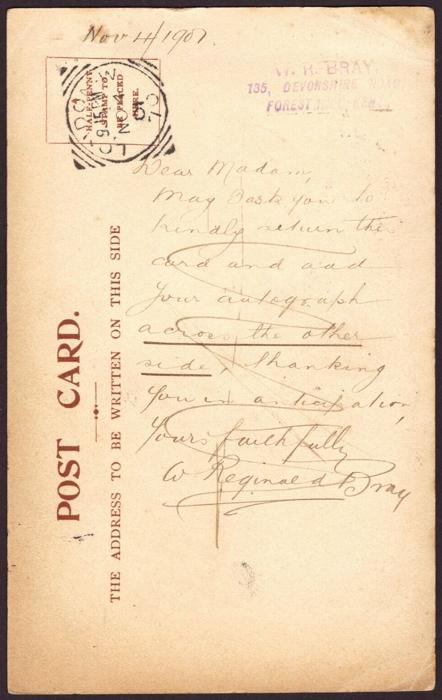 Nov 4/1901.
W. R. BRAY,
135, DEVONSHIRE ROAD,
FOREST HILL, KENT.
A
HALF-PENNY
STAMP TO
BE PLACED
HERE.
LONDON
NO 4
01
Dear Madam,
May I ask you to
kindly return this
card and add
your autograph
across the other
side, thanking
you in anticipation,
Yours faithfully
W Reginald Bray
POST CARD.
THE ADDRESS TO BE WRITTEN ON THIS SIDE